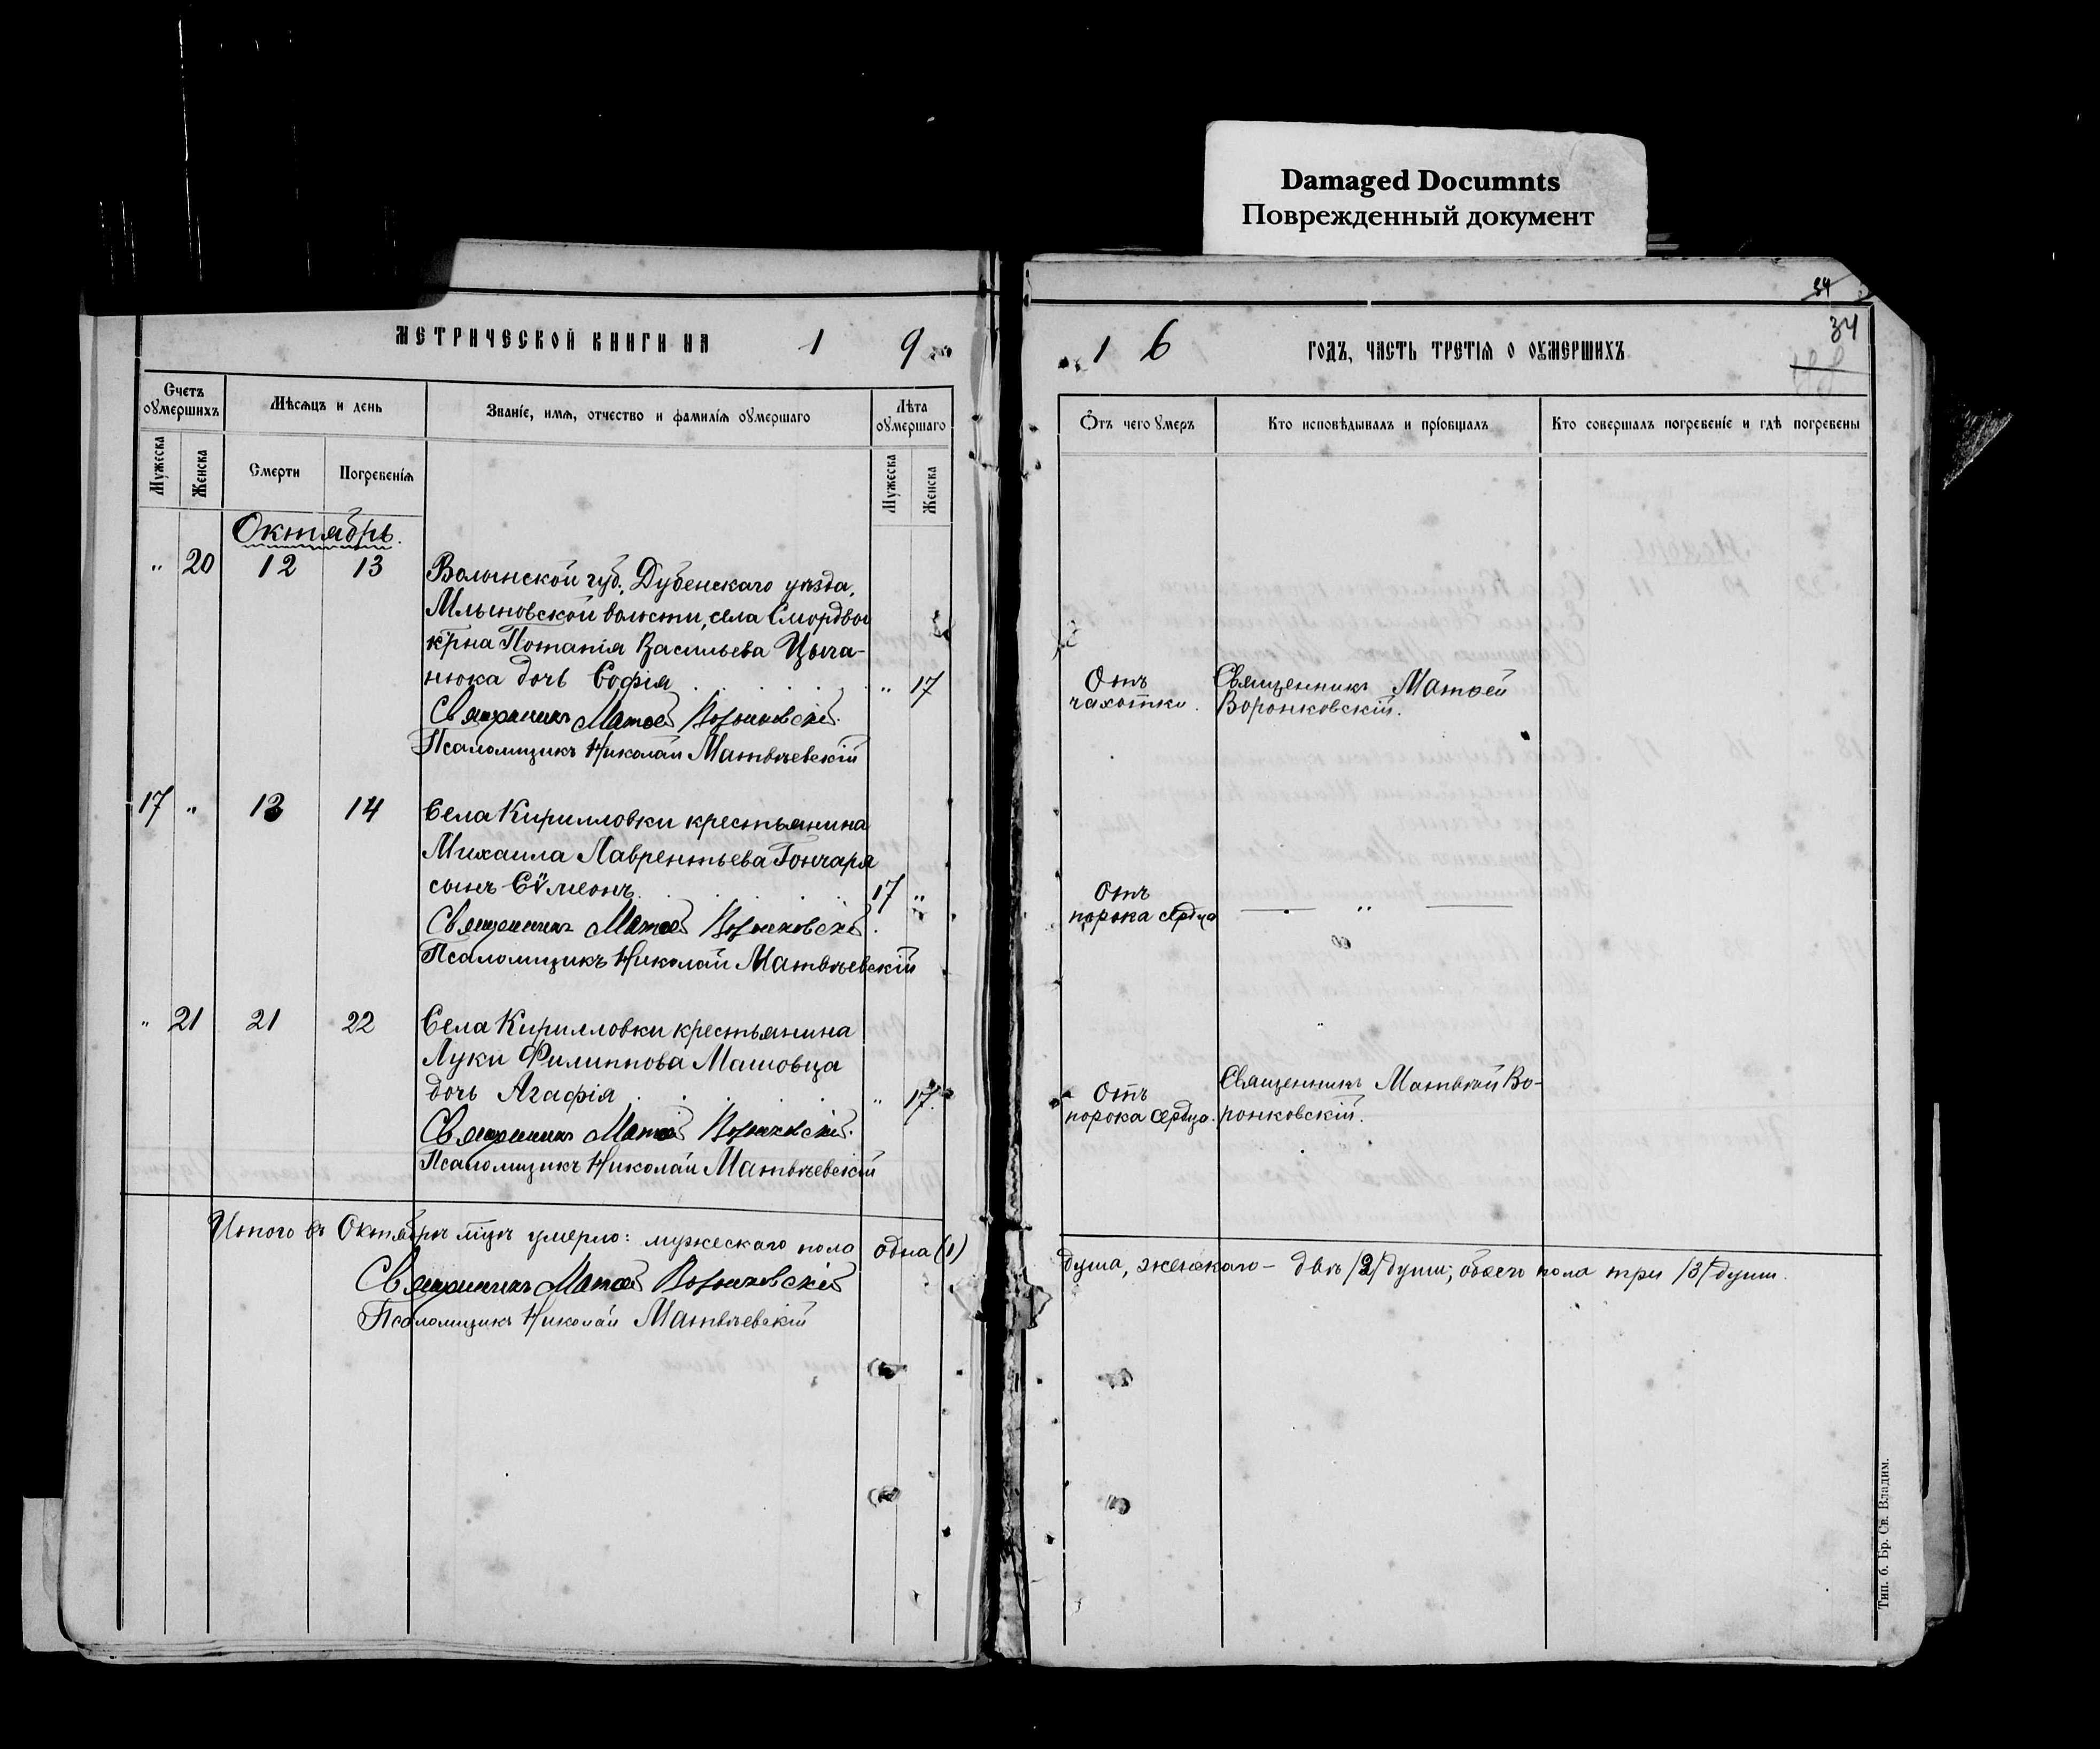 Damaged Documnts
Поврежденный документ
34
34
МЕТРИЧЕСКОЙ КНИГИ НА 1 9
1 6 ГОДЪ, ЧАСТЬ ТРЕТІѦ О ОУМЕРШИХЪ
Счетъ оумершихъ
Мѣсѧцъ и день
Званіе, имѧ, отчество и фамиліѧ оумершаго
Лѣта оумершаго
Мужеска
Женска
Смерти
Погребеніѧ
Мужеска
Женска
Ѿтъ чего умеръ
Кто исповѣдывалъ и пріобщалъ
Кто совершалъ погребеніе и гдѣ погребены
Октябрь.
" 20 12 13 Волынской губ., Дубенскаго уѣзда,
Млыновской волости, села Смордвы
кр̃на Потапія Васильева Цыга-
нюка дочь Софія " 17
Священникъ Матѳей Воронковскій.
Псаломщикъ Николай Матвѣевскій
Отъ
чахотки.
Священникъ Матѳей
Воронковскій.
17 " 13 14 Села Кирилловки крестьянина
Михаила Лаврентьева Гончара
сынъ Сѷмеонъ 17 "
Священникъ Матѳей Воронковскій.
Псаломщикъ Николай Матвѣевскій
Отъ
порока сердца
— " —
" 21 21 22 Села Кирилловки крестьянина
Луки Филиппова Машовца
дочь Агафія " 17.
Священникъ Матѳей Воронковскій.
Псаломщикъ Николай Матвѣевскій
Отъ
порока сердца.
Священникъ Матѳей Во-
ронковскій.
Итого въ Октябрѣ мцѣ умерло: мужескаго пола одна (1)
душа, женскаго – двѣ /2/ души; обоего пола три /3/ души.
Священникъ Матѳей Воронковскій
Псаломщикъ Николай Матвѣевскій
Тип. б. Бр. Св. Владим.